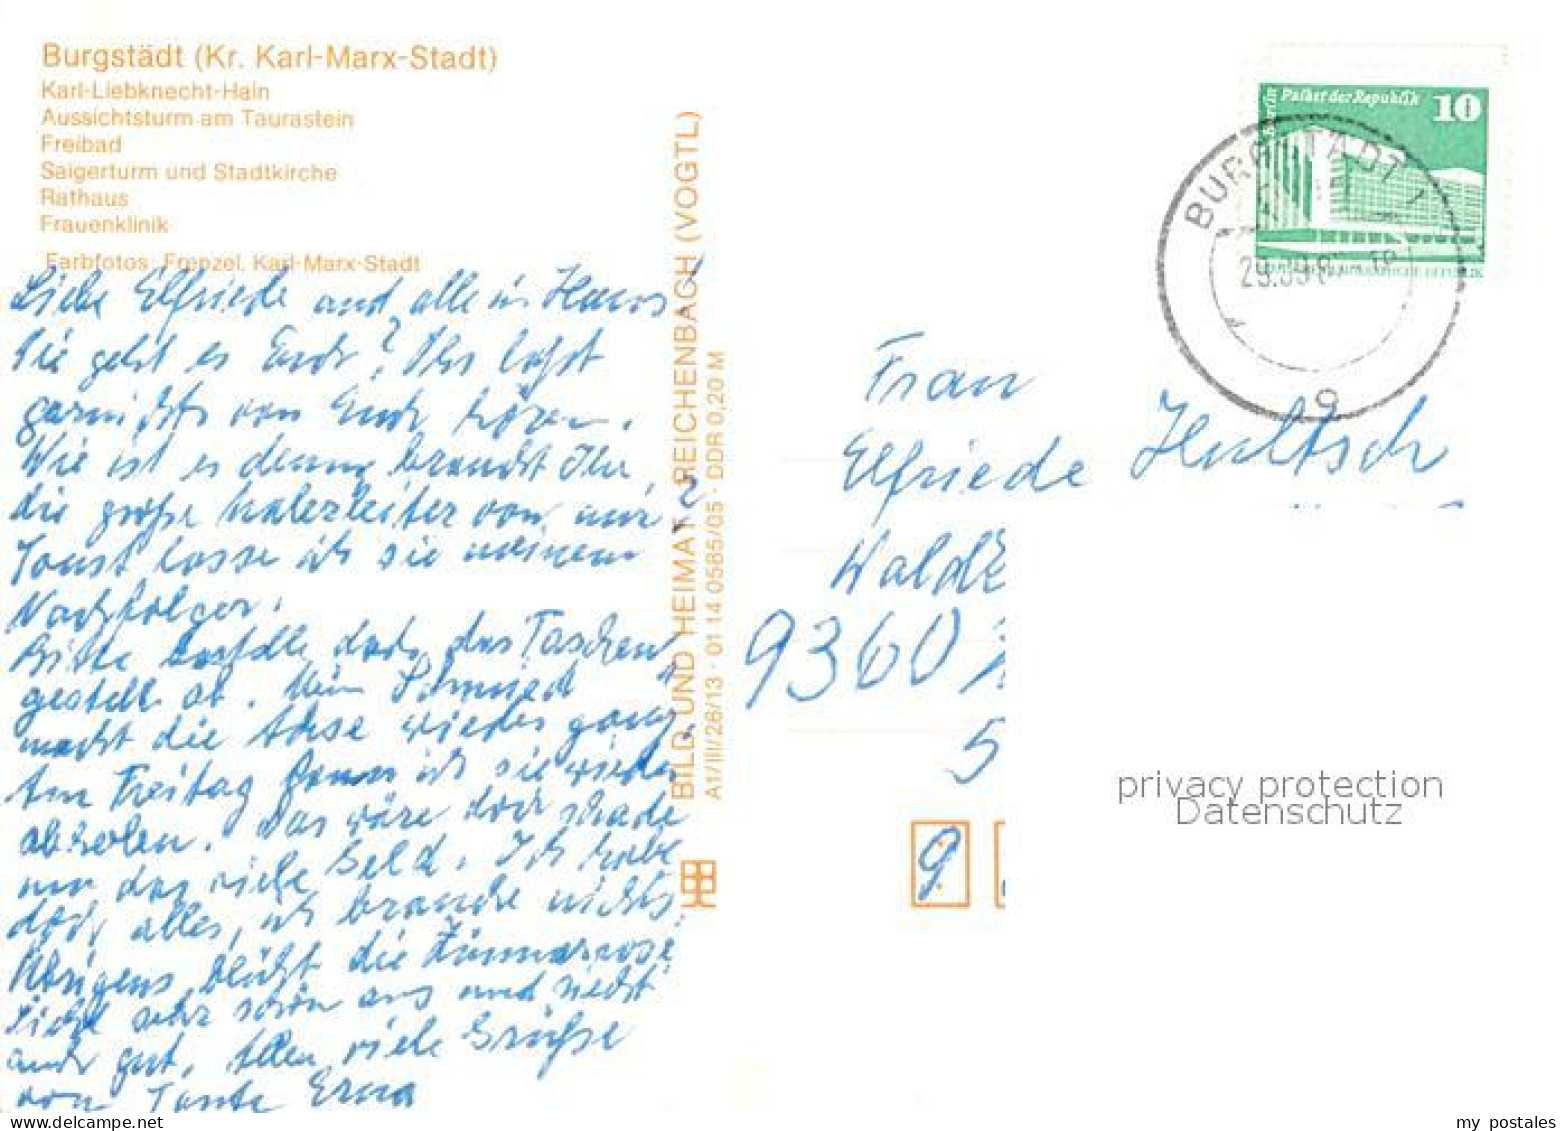 Burgstädt (Kr. Karl-Marx-Stadt)
Karl-Liebknecht-Hain
Aussichtsturm am Taurastein
Freibad
Saigerturm und Stadtkirche
Rathaus
Frauenklinik
Farbfotos: Frenzel, Karl-Marx-Stadt
Liebe Elfriede und alle im Haus
Wie geht es Euch? Ihr laßt
garnichts von Euch hören.
Wie ist es denn, braucht Ihr
die große Malerleiter von mir?
Sonst lasse ich sie meinem
Nachfolger.
Bitte bestelle doch das Taschen
gestell ab. Mein Schmied
macht die Achse wieder ganz.
Am Freitag kann ich sie wieder
abholen. Das wäre doch schade
um das viele Geld. Ich habe
doch alles, ich brauche nichts.
Übrigens blüht die Zimmerrose
sieht sehr schön aus und riecht
auch gut. Allen viele Grüße
von Tante Erna
BILD UND HEIMAT REICHENBACH (VOGTL)
A1/III/26/13 · 01 14 0585/05 · DDR 0,20 M
Berlin Palast der Republik 10
BURGSTÄDT 1
29.09.8
Frau
Elfriede Hultsch
Wald
9360
5
9
privacy protection
Datenschutz
my postales